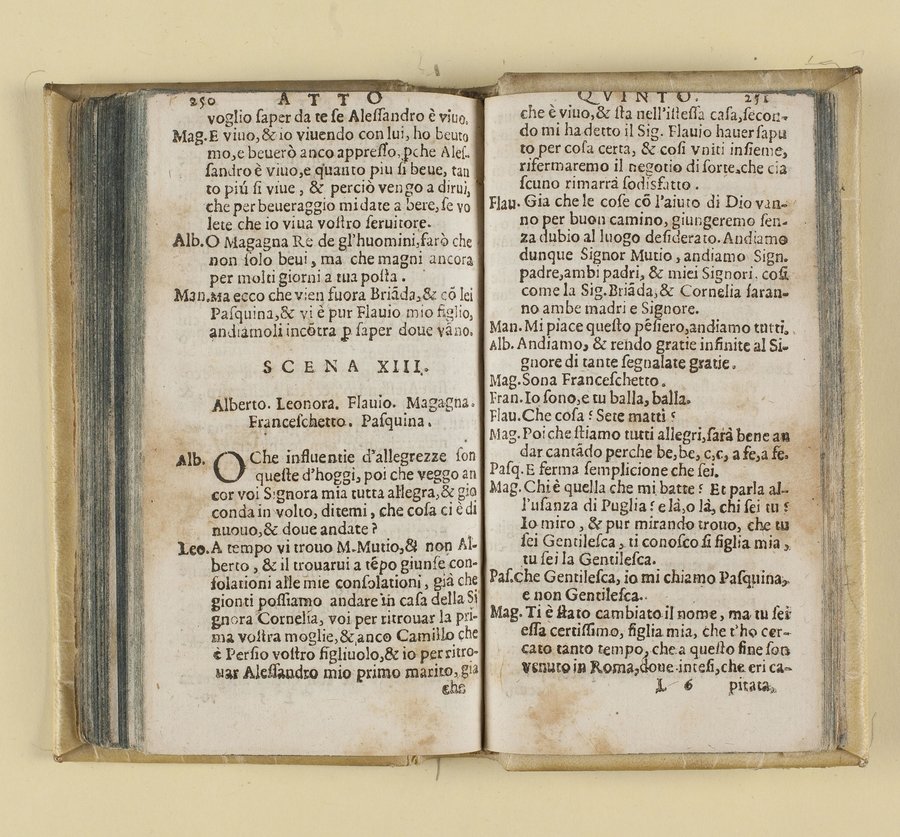 250 ATTO
voglio saper da te se Alessandro è viuo.
Mag. E viuo, & io viuendo con lui, ho beuto
mo, e beuerò anco appresso, pche Ales-
sandro è viuo, e quanto piu si beue, tan
to piú si viue, & perciò vengo a dirui,
che per beueraggio mi date a bere, se vo
lete che io viua vostro seruitore.
Alb. O Magagna Re de gl'huomini, farò che
non solo beui, ma che magni ancora
per molti giorni a tua posta.
Man. Ma ecco che vien fuora Briãda, & cõ lei
Pasquina, & vi è pur Flauio mio figlio,
andiamoli incõtra p saper doue vãno.
SCENA XIII.
Alberto. Leonora. Flauio. Magagna.
Franceschetto. Pasquina.
Alb. O Che influentie d'allegrezze son
queste d'hoggi, poi che veggo an
cor voi Signora mia tutta allegra, & gio
conda in volto, ditemi, che cosa ci è di
nuouo, & doue andate?
Leo. A tempo vi trouo M. Mutio, & non Al-
berto, & il trouarui a tẽpo giunse con-
solationi alle mie consolationi, già che
gionti possiamo andare in casa della Si
gnora Cornelia, voi per ritrouar la pri-
ma vostra moglie, & anco Camillo che
è Persio vostro figliuolo, & io per ritro-
uar Alessandro mio primo marito, gia
che
QVINTO. 251
che è viuo, & sta nell'istessa casa, secon-
do mi ha detto il Sig. Flauio hauer sapu
to per cosa certa, & cosi vniti insieme,
rifermaremo il negotio di sorte, che cia
scuno rimarrà sodisfatto.
Flau. Gia che le cose cõ l'aiuto di Dio van-
no per buon camino, giungeremo sen-
za dubio al luogo desiderato. Andiamo
dunque Signor Mutio, andiamo Sign.
padre, ambi padri, & miei Signori, cosi
come la Sig. Briãda, & Cornelia saran-
no ambe madri e Signore.
Man. Mi piace questo pẽsiero, andiamo tutti.
Alb. Andiamo, & rendo gratie infinite al Si-
gnore di tante segnalate gratie.
Mag. Sona Franceschetto.
Fran. Io sono, e tu balla, balla.
Flau. Che cosa? Sete matti?
Mag. Poi che stiamo tutti allegri, sarà bene an
dar cantãdo perche be, be, c, c, a fe, a fe.
Pasq. E ferma semplicione che sei.
Mag. Chi è quella che mi batte? Et parla al-
l'usanza di Puglia? e là, o là, chi sei tu?
Io miro, & pur mirando trouo, che tu
sei Gentilesca, ti conosco si figlia mia,
tu sei la Gentilesca.
Pas. Che Gentilesca, io mi chiamo Pasquina,
e non Gentilesca.
Mag. Ti è stato cambiato il nome, ma tu sei
essa certissimo, figlia mia, che t'ho cer-
cato tanto tempo, che a questo fine son
venuto in Roma, doue intesi, che eri ca-
L 6 pitata,